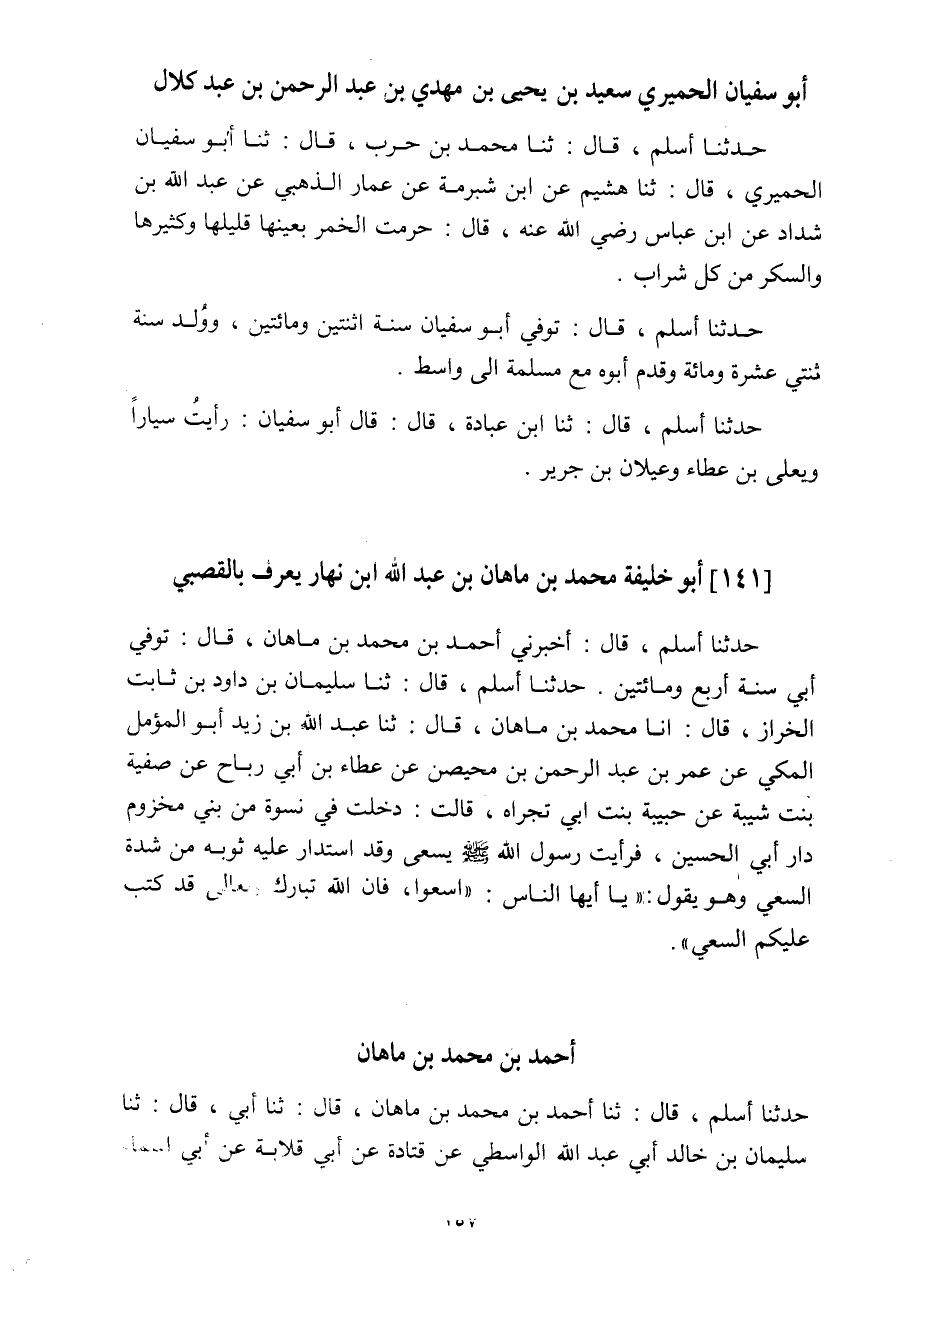 أبو سفيان الحميري سعيد بن يحيى بن مهدي بن عبد الرحمن بن عبد كلال
حدثنا أسلم ، قال : ثنا محمد بن حرب ، قال : ثنا أبو سفيان
الحميري ، قال : ثنا هشيم عن ابن شبرمة عن عمار الذهبي عن عبد الله بن
شداد عن ابن عباس رضي الله عنه ، قال : حرمت الخمر بعينها قليلها وكثيرها
والسكر من كل شراب .
حدثنا أسلم ، قال : توفي أبو سفيان سنة اثنتين ومائتين ، ووُلد سنة
ثنتي عشرة ومائة وقدم أبوه مع مسلمة الى واسط .
حدثنا أسلم ، قال : ثنا ابن عبادة ، قال : قال أبو سفيان : رأيتُ سياراً
ويعلى بن عطاء وعيلان بن جرير .
[١٤١] أبو خليفة محمد بن ماهان بن عبد الله ابن نهار يعرف بالقصبي
حدثنا أسلم ، قال : أخبرني أحمد بن محمد بن ماهان ، قال : توفي
أبي سنة أربع ومائتين . حدثنا أسلم ، قال : ثنا سليمان بن داود بن ثابت
الخراز ، قال : انا محمد بن ماهان ، قال : ثنا عبد الله بن زيد أبو المؤمل
المكي عن عمر بن عبد الرحمن بن محيصن عن عطاء بن أبي رباح عن صفية
بنت شيبة عن حبيبة بنت ابي تجراه ، قالت : دخلت في نسوة من بني مخزوم
دار أبي الحسين ، فرأيت رسول الله ﷺ يسعى وقد استدار عليه ثوبه من شدة
السعي وهو يقول : « يا أيها الناس : «اسعوا، فان الله تبارك وتعالى قد كتب
عليكم السعي» .
أحمد بن محمد بن ماهان
حدثنا أسلم ، قال : ثنا أحمد بن محمد بن ماهان ، قال : ثنا أبي ، قال : ثنا
سليمان بن خالد أبي عبد الله الواسطي عن قتادة عن أبي قلابة عن أبي اسماء
١٥٧